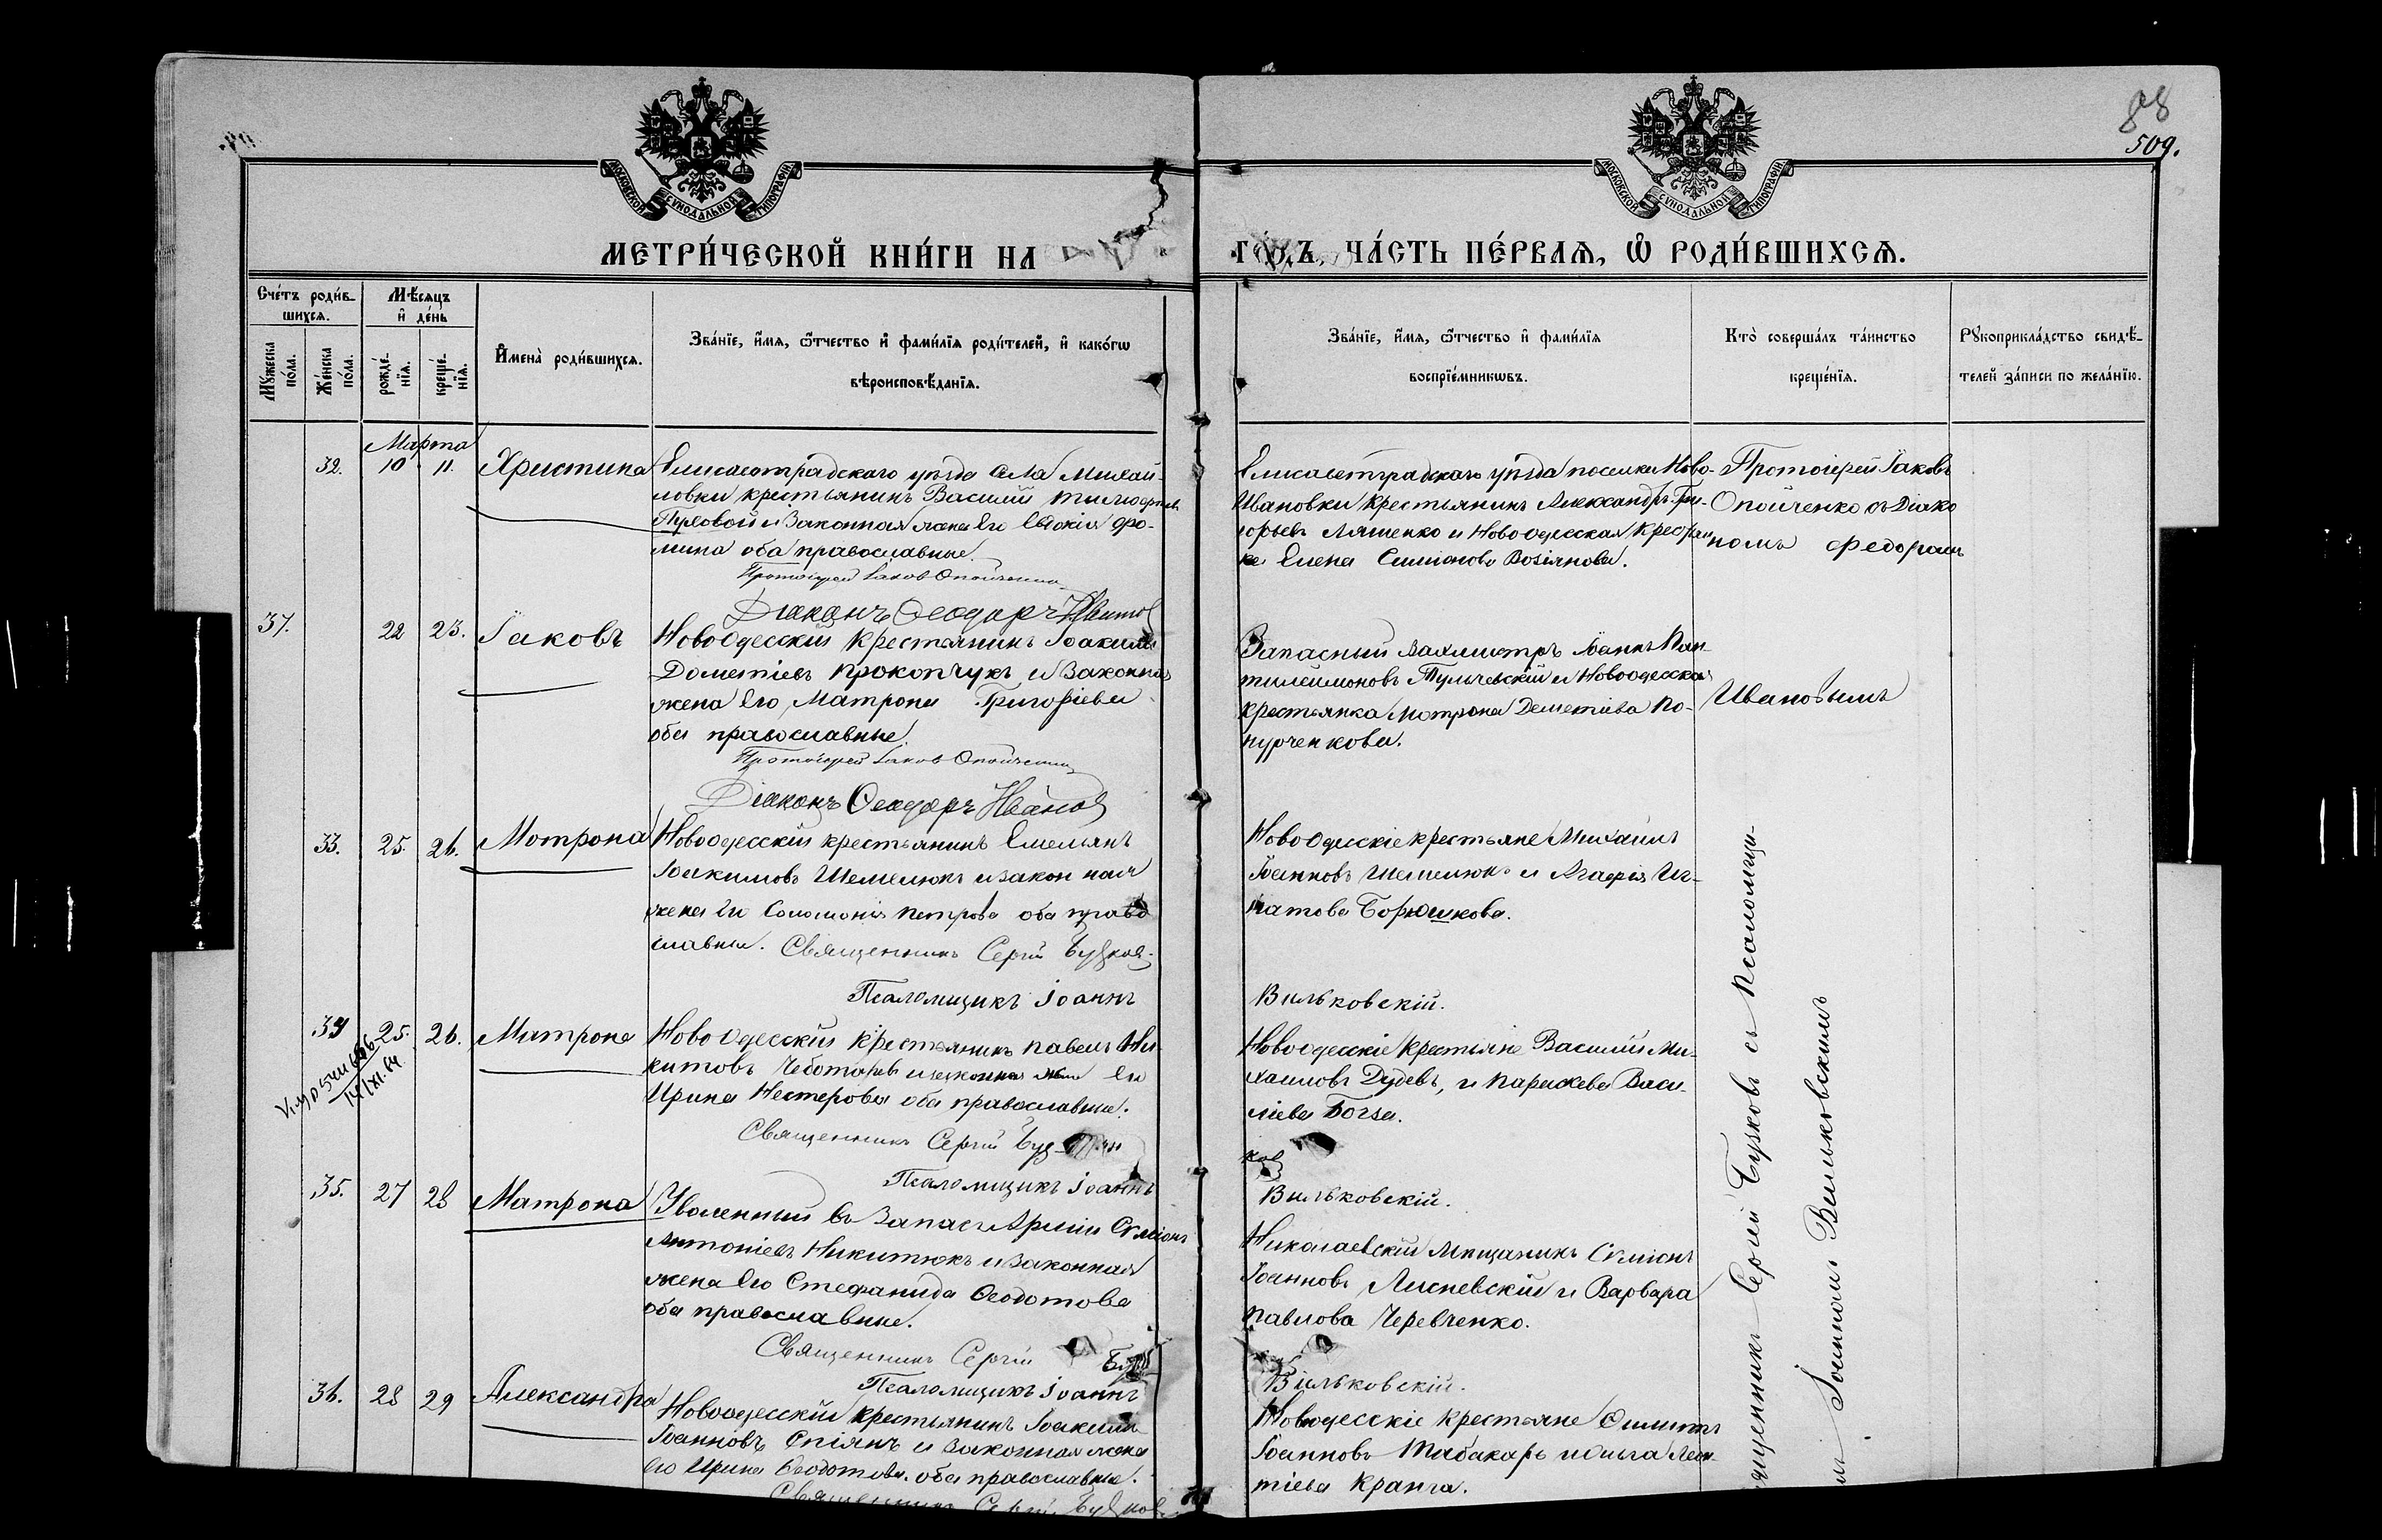 88
509.
МОСКОВСКОЙ СѴНОДАЛЬНОЙ ТИПОГРАФІИ
МОСКОВСКОЙ СѴНОДАЛЬНОЙ ТИПОГРАФІИ
МЕТРИ́ЧЕСКОЙ КНИ́ГИ НА
ГО́ДЪ, ЧА́СТЬ ПЕ́РВАѦ, Ѡ҆ РОДИ́ВШИХСѦ.
Сче́тъ роди́в-
шихсѧ.
Мꙋ́жеска
по́ла.
Же́нска
по́ла.
Мѣ́сѧцъ
и҆ де́нь
рожде́-
нїѧ.
креще́-
нїѧ.
И҆мена̀ роди́вшихсѧ.
Зва́нїе, и҆́мѧ, ѻ҆́тчество и҆ фами́лїѧ роди́телей, и҆ како́гѡ
вѣроисповѣ́данїѧ.
Зва́нїе, и҆́мѧ, ѻ҆́тчество и҆ фами́лїѧ
воспрїе́мникѡвъ.
Кто̀ соверша́лъ та́инство
креще́нїѧ.
Рꙋкоприкла́дство свидѣ́-
телей за́писи по жела́нїю.
Марта
32.
10
11.
Христина
Елисаветградскаго уѣзда села Михай-
ловки крестьянинъ Василій
Пуховой и законная жена его Евдокія Фо-
мина оба православные
Протоіерей Іаков Опойченко
Діаконъ Ѳеодоръ Иванов
Елисаветградскаго уѣзда поселка Ново-
Ивановки крестьянинъ Александръ Гри-
горьевъ Ляшенко и Новоодесская крестьян
ка Елена Симионова Возіянова.
Протоіерей Іаковъ
Опойченко съ Діако
номъ Федоромъ
Ивановымъ
37.
22
23.
Іаковъ
Новоодесскій крестьянинъ Іоакимъ
Дометіевъ Прокопчукъ и законная
жена его Матрона Григоріева
оба православные
Протоіерей Іаков Опойченко
Діаконъ Ѳеодоръ Иванов
Запасный вахмистръ Іоаннъ Пан-
тилеимоновъ Тульчевскій и Новоодесская
крестьянка Мотрона Деметіева По-
нурченкова.
33.
25.
26.
Мотрона
Новоодесскій крестьянинъ Емельянъ
Іоакимовъ Шемелюкъ и законная
жена его Соломонія Петрова оба право
славные. Священникъ Сергій Бузков
Псаломщикъ Іоаннъ
Вильковскій.
Новоодесскіе крестьяне Михаилъ
Іоанновъ Шемелюкъ и Агафія Иг-
натова Борюшкова.
34
25.
26.
Матрона
Новоодесскій крестьянинъ Павелъ Ни-
китовъ Чеботаревъ и законная жена его
Ирина Нестерова оба православные.
Священникъ Сергій Буз
ков
Псаломщикъ Іоаннъ
Вильковскій.
Новоодесскіе крестьяне Василій Ми-
хаиловъ Дудевъ, и Параскева Васи-
ліева Богза.
35.
27
28
Матрона
Уволенный въ запасъ Арміи Симіонъ
Антоніевъ Никитюкъ и законная
жена его Стефанида Ѳеодотова
оба православные.
Священникъ Сергій Буз
Псаломщикъ Іоаннъ
Вильковскій.
Николаевскій мѣщанинъ Симіонъ
Іоанновъ Лисневскій и Варвара
Павлова Черевченко.
36.
28
29
Александра
Новоодесскій крестьянинъ Іоакимъ
Іоанновъ Спіянъ и законная жена
его Ирина Ѳеодотова. оба православные.
Священникъ Сергій Бузков
Новоодесскіе крестьяне Филиппъ
Іоанновъ Табакарь и Ольга Леон-
тіева Кранга.
Священникъ Сергій Бузковъ съ Псаломщи-
комъ Іоанномъ Вильковскимъ